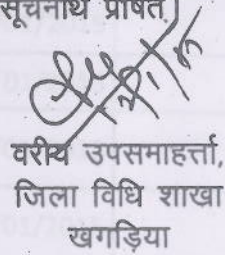 सूचनार्थ प्रेषित।
वरीय उपसमाहर्त्ता,
जिला विधि शाखा
खगड़िया